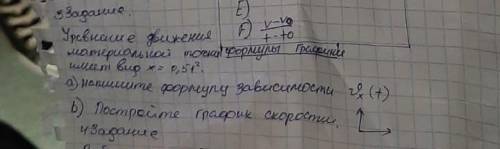 3Задание.
E)
F) v-v0
t-t0
Уревнение движения
материальной точки формулы графики
имеет вид x = 0,5t².
а) напишите формулу зависимости vₓ(t)
b) Постройте график скорости.
4Задание